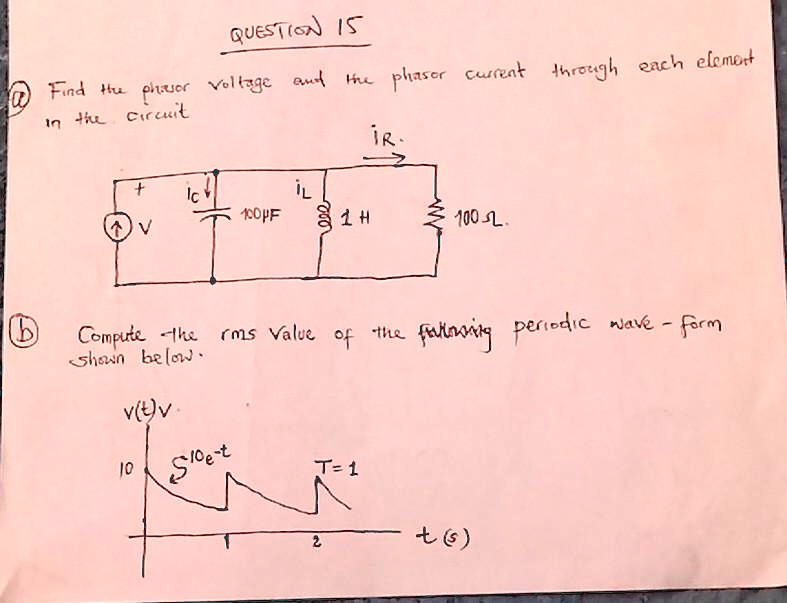 QUESTION 15
(a) Find the phasor voltage and the phasor current through each element
in the circuit
iR.
+
ic
iL
V
100μF
1 H
100Ω.
(b) Compute the rms value of the following periodic wave-form
shown below.
v(t)v.
10
10e-t
T=1
1
2
t(s)